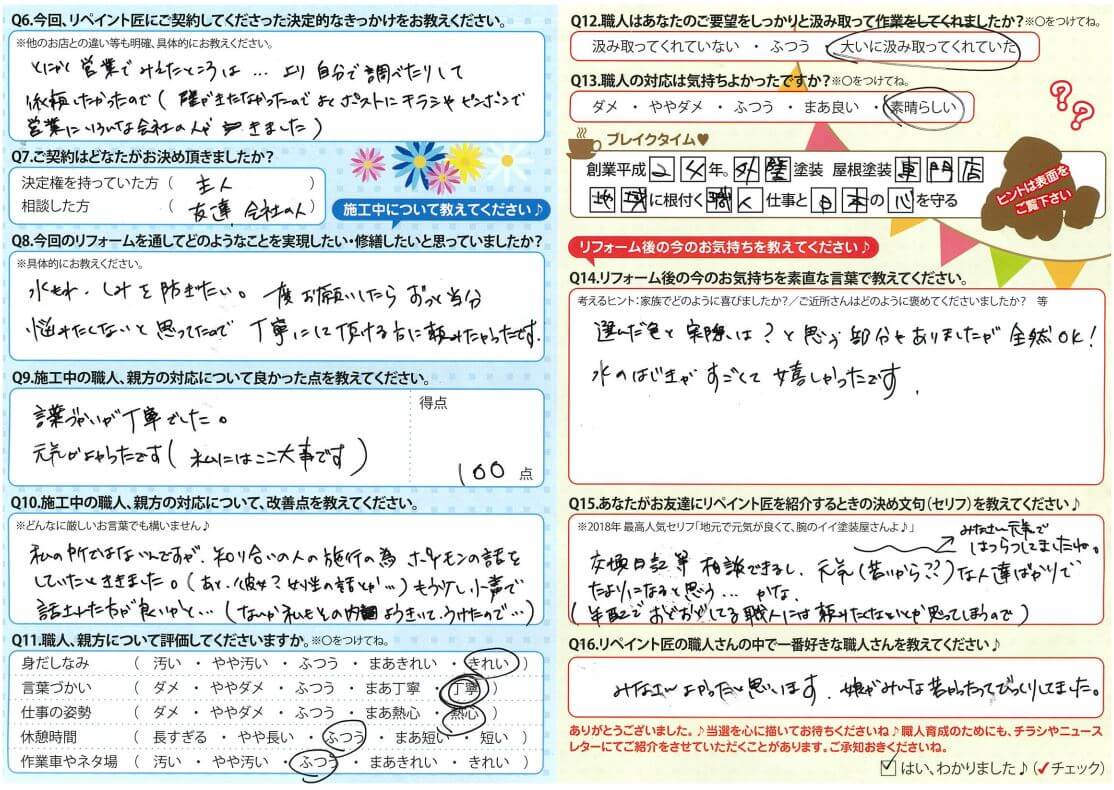 Q6.今回、リペイント匠にご契約してくださった決定的なきっかけをお教えください。
※他のお店との違い等も明確、具体的にお教えください。
とにかく営業でみえたところは… より自分で調べたりして
依頼したかったので(壁がきたなかったのでよくポストにチラシやピンポンで
営業にいろいろな会社の人が きました)
Q7.ご契約はどなたがお決め頂きましたか?
決定権を持っていた方( 主人 )
相談した方( 友達 会社の人 )
施工中について教えてください♪
Q8.今回のリフォームを通してどのようなことを実現したい・修繕したいと思っていましたか?
※具体的にお教えください。
水もれ、しみを防ぎたい。一度お願いしたらずっと当分
悩みたくないと思ってたので丁寧にして頂ける方に頼みたかったです。
Q9.施工中の職人、親方の対応について良かった点を教えてください。
言葉づかいが丁寧でした。
元気がよかったです(私にはここ大事です)
得点
100 点
Q10.施工中の職人、親方の対応について、改善点を教えてください。
※どんなに厳しいお言葉でも構いません♪
私の所ではないんですが、知り合いの人の施行の為 ポケモンの話を
していたとききました。(あと、彼女?女性の話とか…)もう少し小声で
話した方が良いかと…(なんか私もその内 ようきいて、うけたので…)
Q11.職人、親方について評価してくださいますか。※○をつけてね。
身だしなみ ( 汚い ・ やや汚い ・ ふつう ・ まあきれい ・ きれい )
言葉づかい ( ダメ ・ ややダメ ・ ふつう ・ まあ丁寧 ・ 丁寧 )
仕事の姿勢 ( ダメ ・ ややダメ ・ ふつう ・ まあ熱心 ・ 熱心 )
休憩時間 ( 長すぎる ・ やや長い ・ ふつう ・ まあ短い ・ 短い )
作業車やネタ場 ( 汚い ・ やや汚い ・ ふつう ・ まあきれい ・ きれい )
Q12.職人はあなたのご要望をしっかりと汲み取って作業をしてくれましたか?※○をつけてね。
汲み取ってくれていない ・ ふつう ・ 大いに汲み取ってくれていた
Q13.職人の対応は気持ちよかったですか?※○をつけてね。
ダメ ・ ややダメ ・ ふつう ・ まあ良い ・ 素晴らしい
ブレイクタイム♥
創業平成24年。外壁塗装 屋根塗装専門店
地域に根付く職人仕事と日本の心を守る
??
ヒントは表面を
ご覧下さい
リフォーム後の今のお気持ちを教えてください♪
Q14.リフォーム後の今のお気持ちを素直な言葉で教えてください。
考えるヒント:家族でどのように喜びましたか?/ご近所さんはどのように褒めてくださいましたか? 等
選んだ色と実際は?と思う部分もありましたが全然OK!
水のはじきがすごくて嬉しかったです。
Q15.あなたがお友達にリペイント匠を紹介するときの決め文句(セリフ)を教えてください♪
※2018年 最高人気セリフ「地元で元気が良くて、腕のイイ塗装屋さんよ♪」
みなさん元気で
はつらつしてましたね。
交換日記等 相談できるし、元気(若いから??)な人達ばかりで
たよりになると思う… かな
(年配でおどおどしてる職人には頼みたくないとか思ってしまうので)
Q16.リペイント匠の職人さんの中で一番好きな職人さんを教えてください♪
みなさんよかったと思います。娘がみんな若かったってびっくりしてました。
ありがとうございました。♪当選を心に描いてお待ちくださいね♪職人育成のためにも、チラシやニュース
レターにてご紹介をさせていただくことがあります。ご承知おきくださいね。
☑はい、わかりました♪(✓チェック)